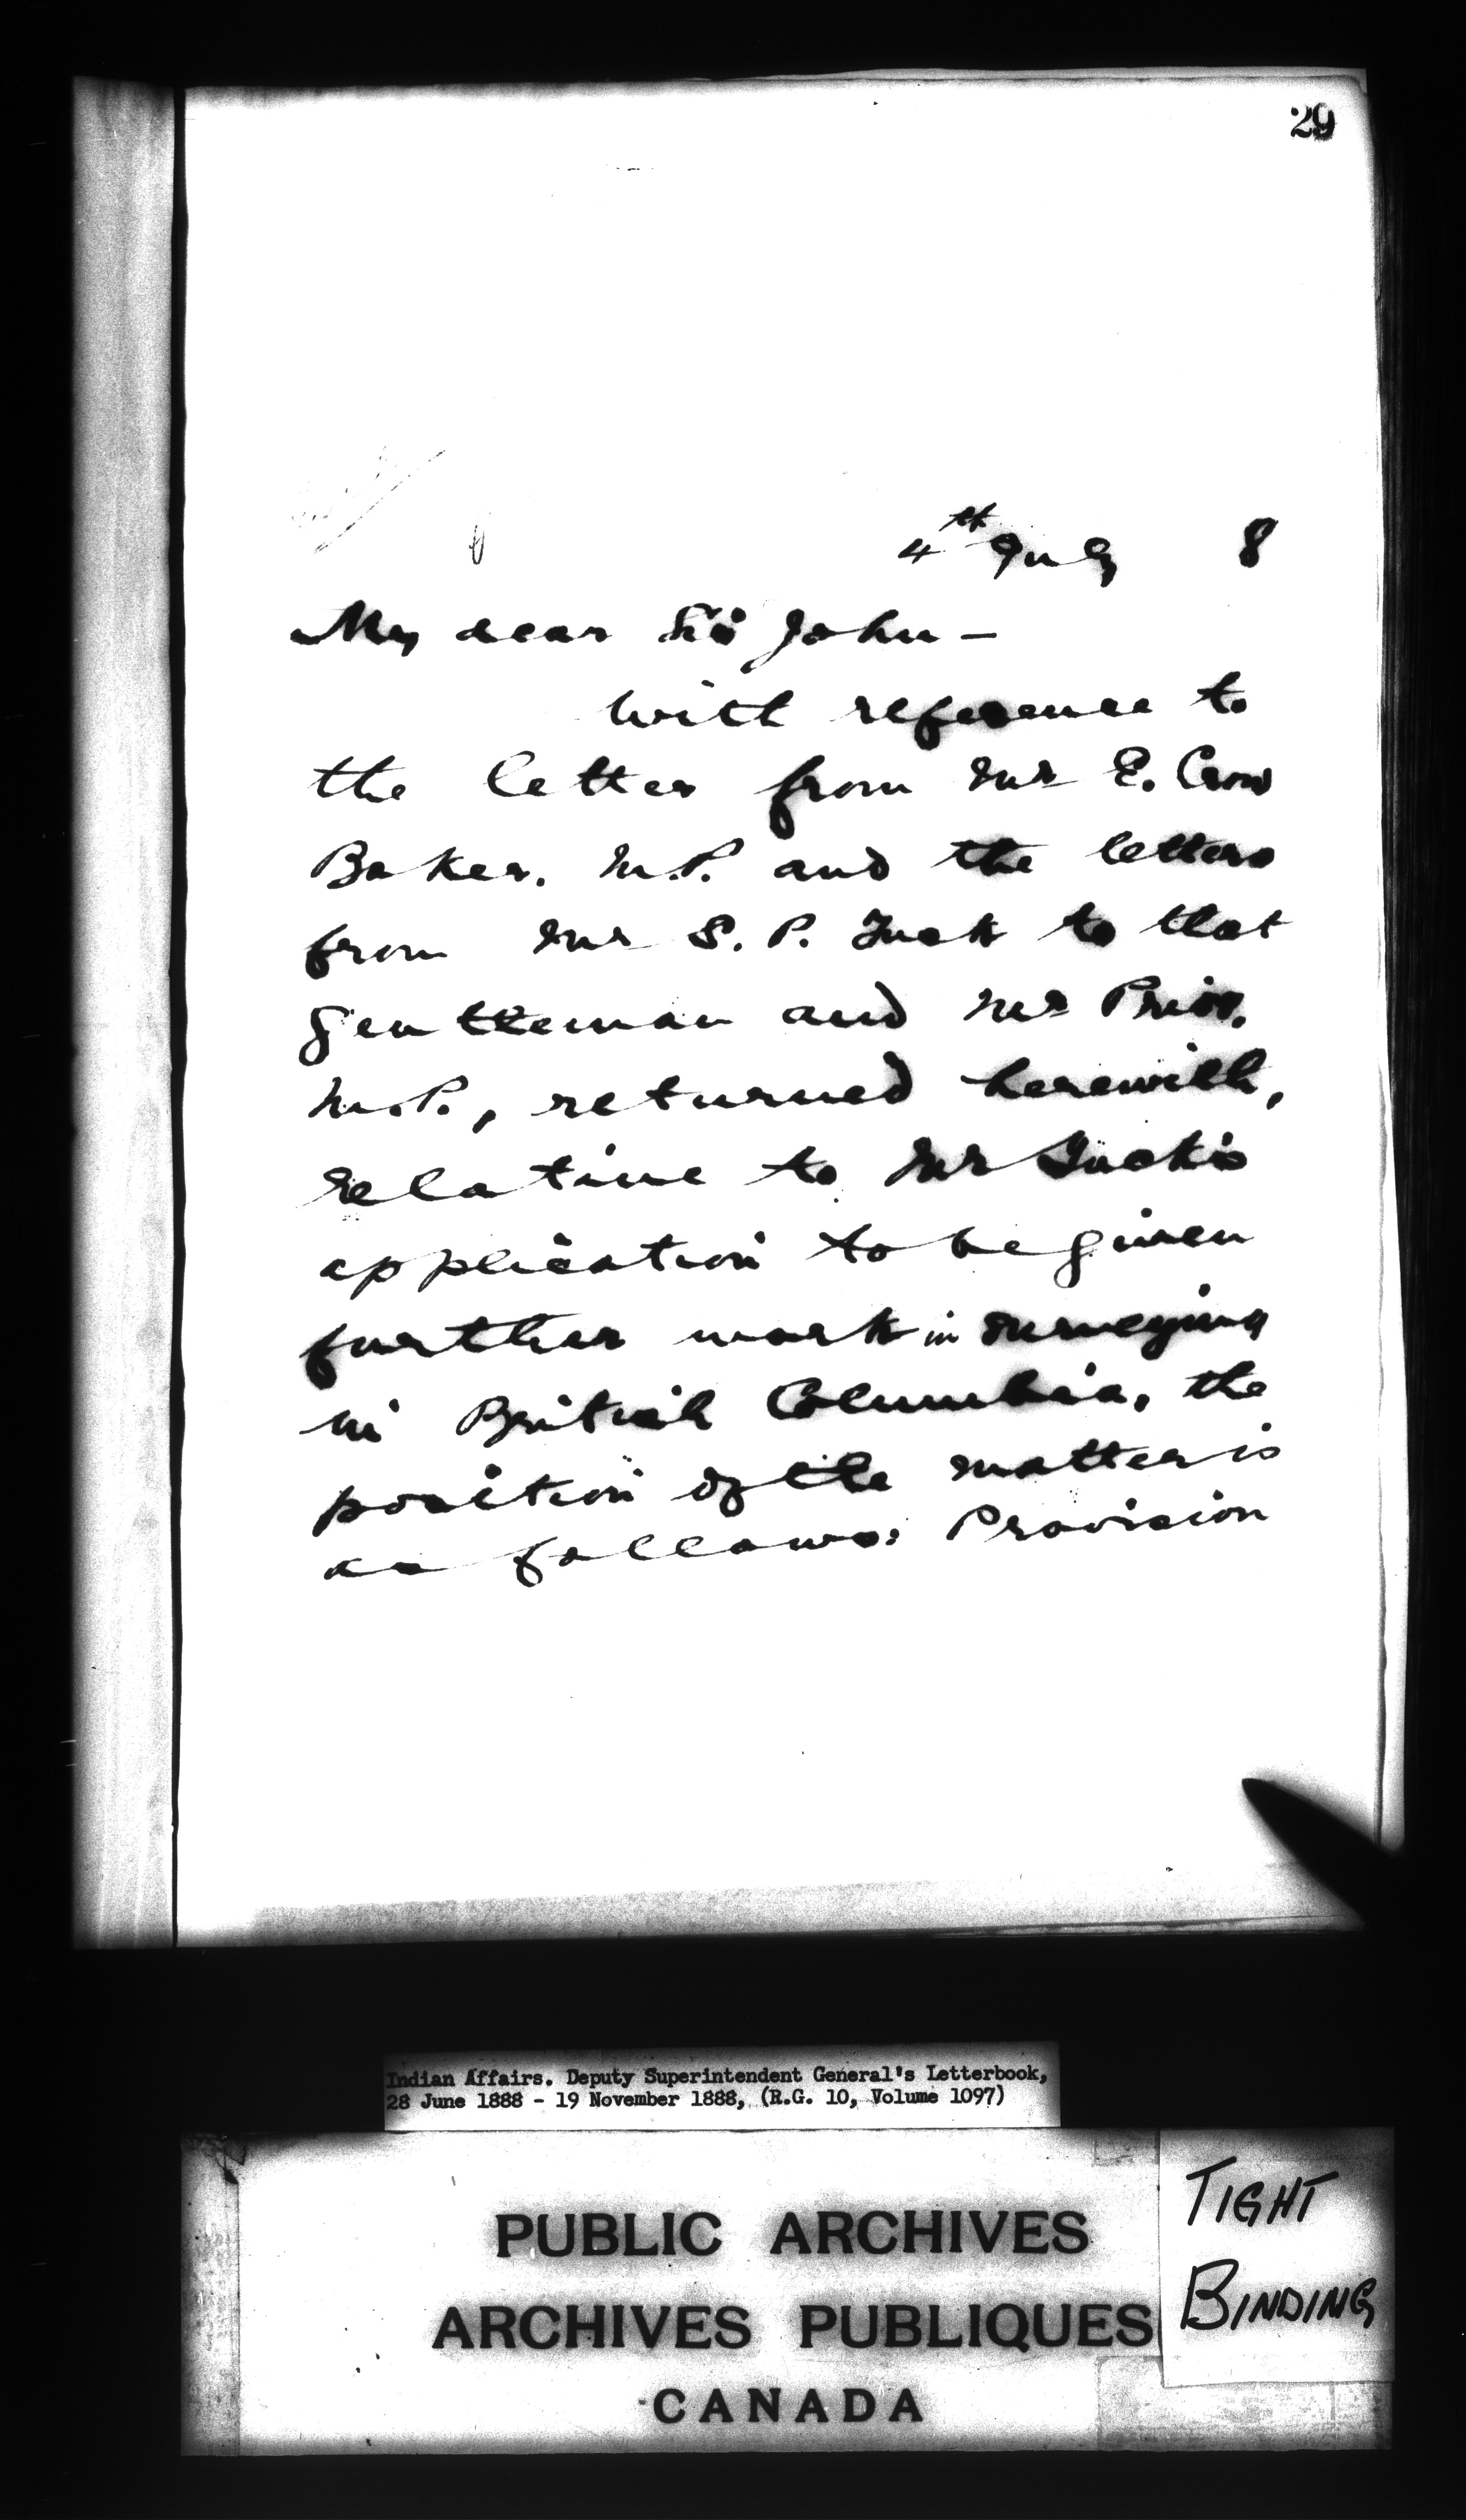 29
4th July 8
My dear Sir John –
With reference to
the letter from Mr E. Crow
Baker. M.P. and the letters
from Mr S. P. Tuck to that
gentleman and Mr Prior.
M.P., returned herewith,
relative to Mr Tuck's
application to be given
further work in surveying
in British Columbia, the
position of the matter is
as follows: Provision
Indian Affairs. Deputy Superintendent General's Letterbook,
28 June 1888 - 19 November 1888, (R.G. 10, Volume 1097)
PUBLIC ARCHIVES
ARCHIVES PUBLIQUES
CANADA
TIGHT
BINDING